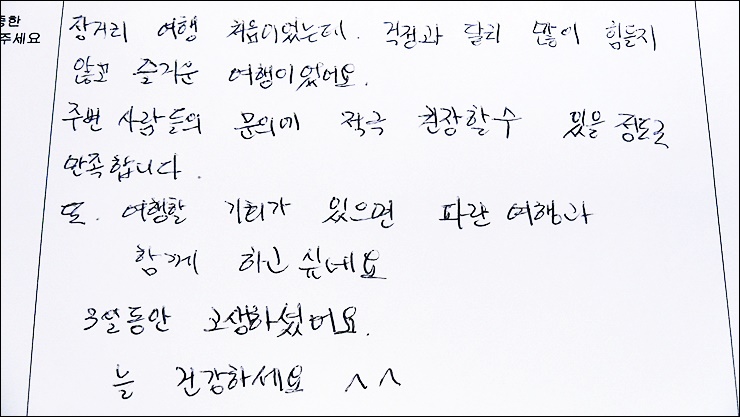 통한
주세요
장거리 여행 처음이었는데. 걱정과 달리 많이 힘들지
않고 즐거운 여행이었어요.
주변 사람들의 문의에 적극 권장할수 있을 정도로
만족합니다.
또. 여행할 기회가 있으면 파란 여행과
함께 하고 싶네요
3일동안 고생하셨어요.
늘 건강하세요 ^^